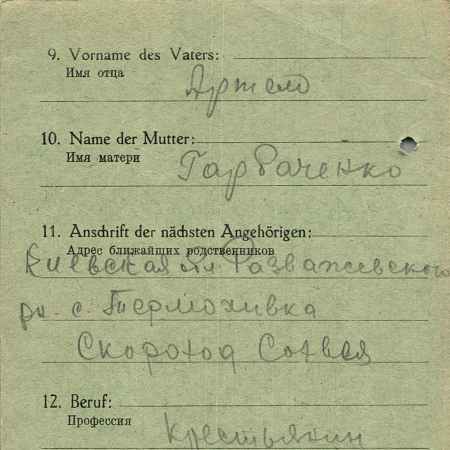 9. Vorname des Vaters:
Имя отца
Артем
10. Name der Mutter:
Имя матери
Гарбаченко
11. Anschrift der nächsten Angehörigen:
Адрес ближайших родственников
Киевская Розважевского
рн с. Термохивка
Скороход
12. Beruf:
Профессия
Крестьянин